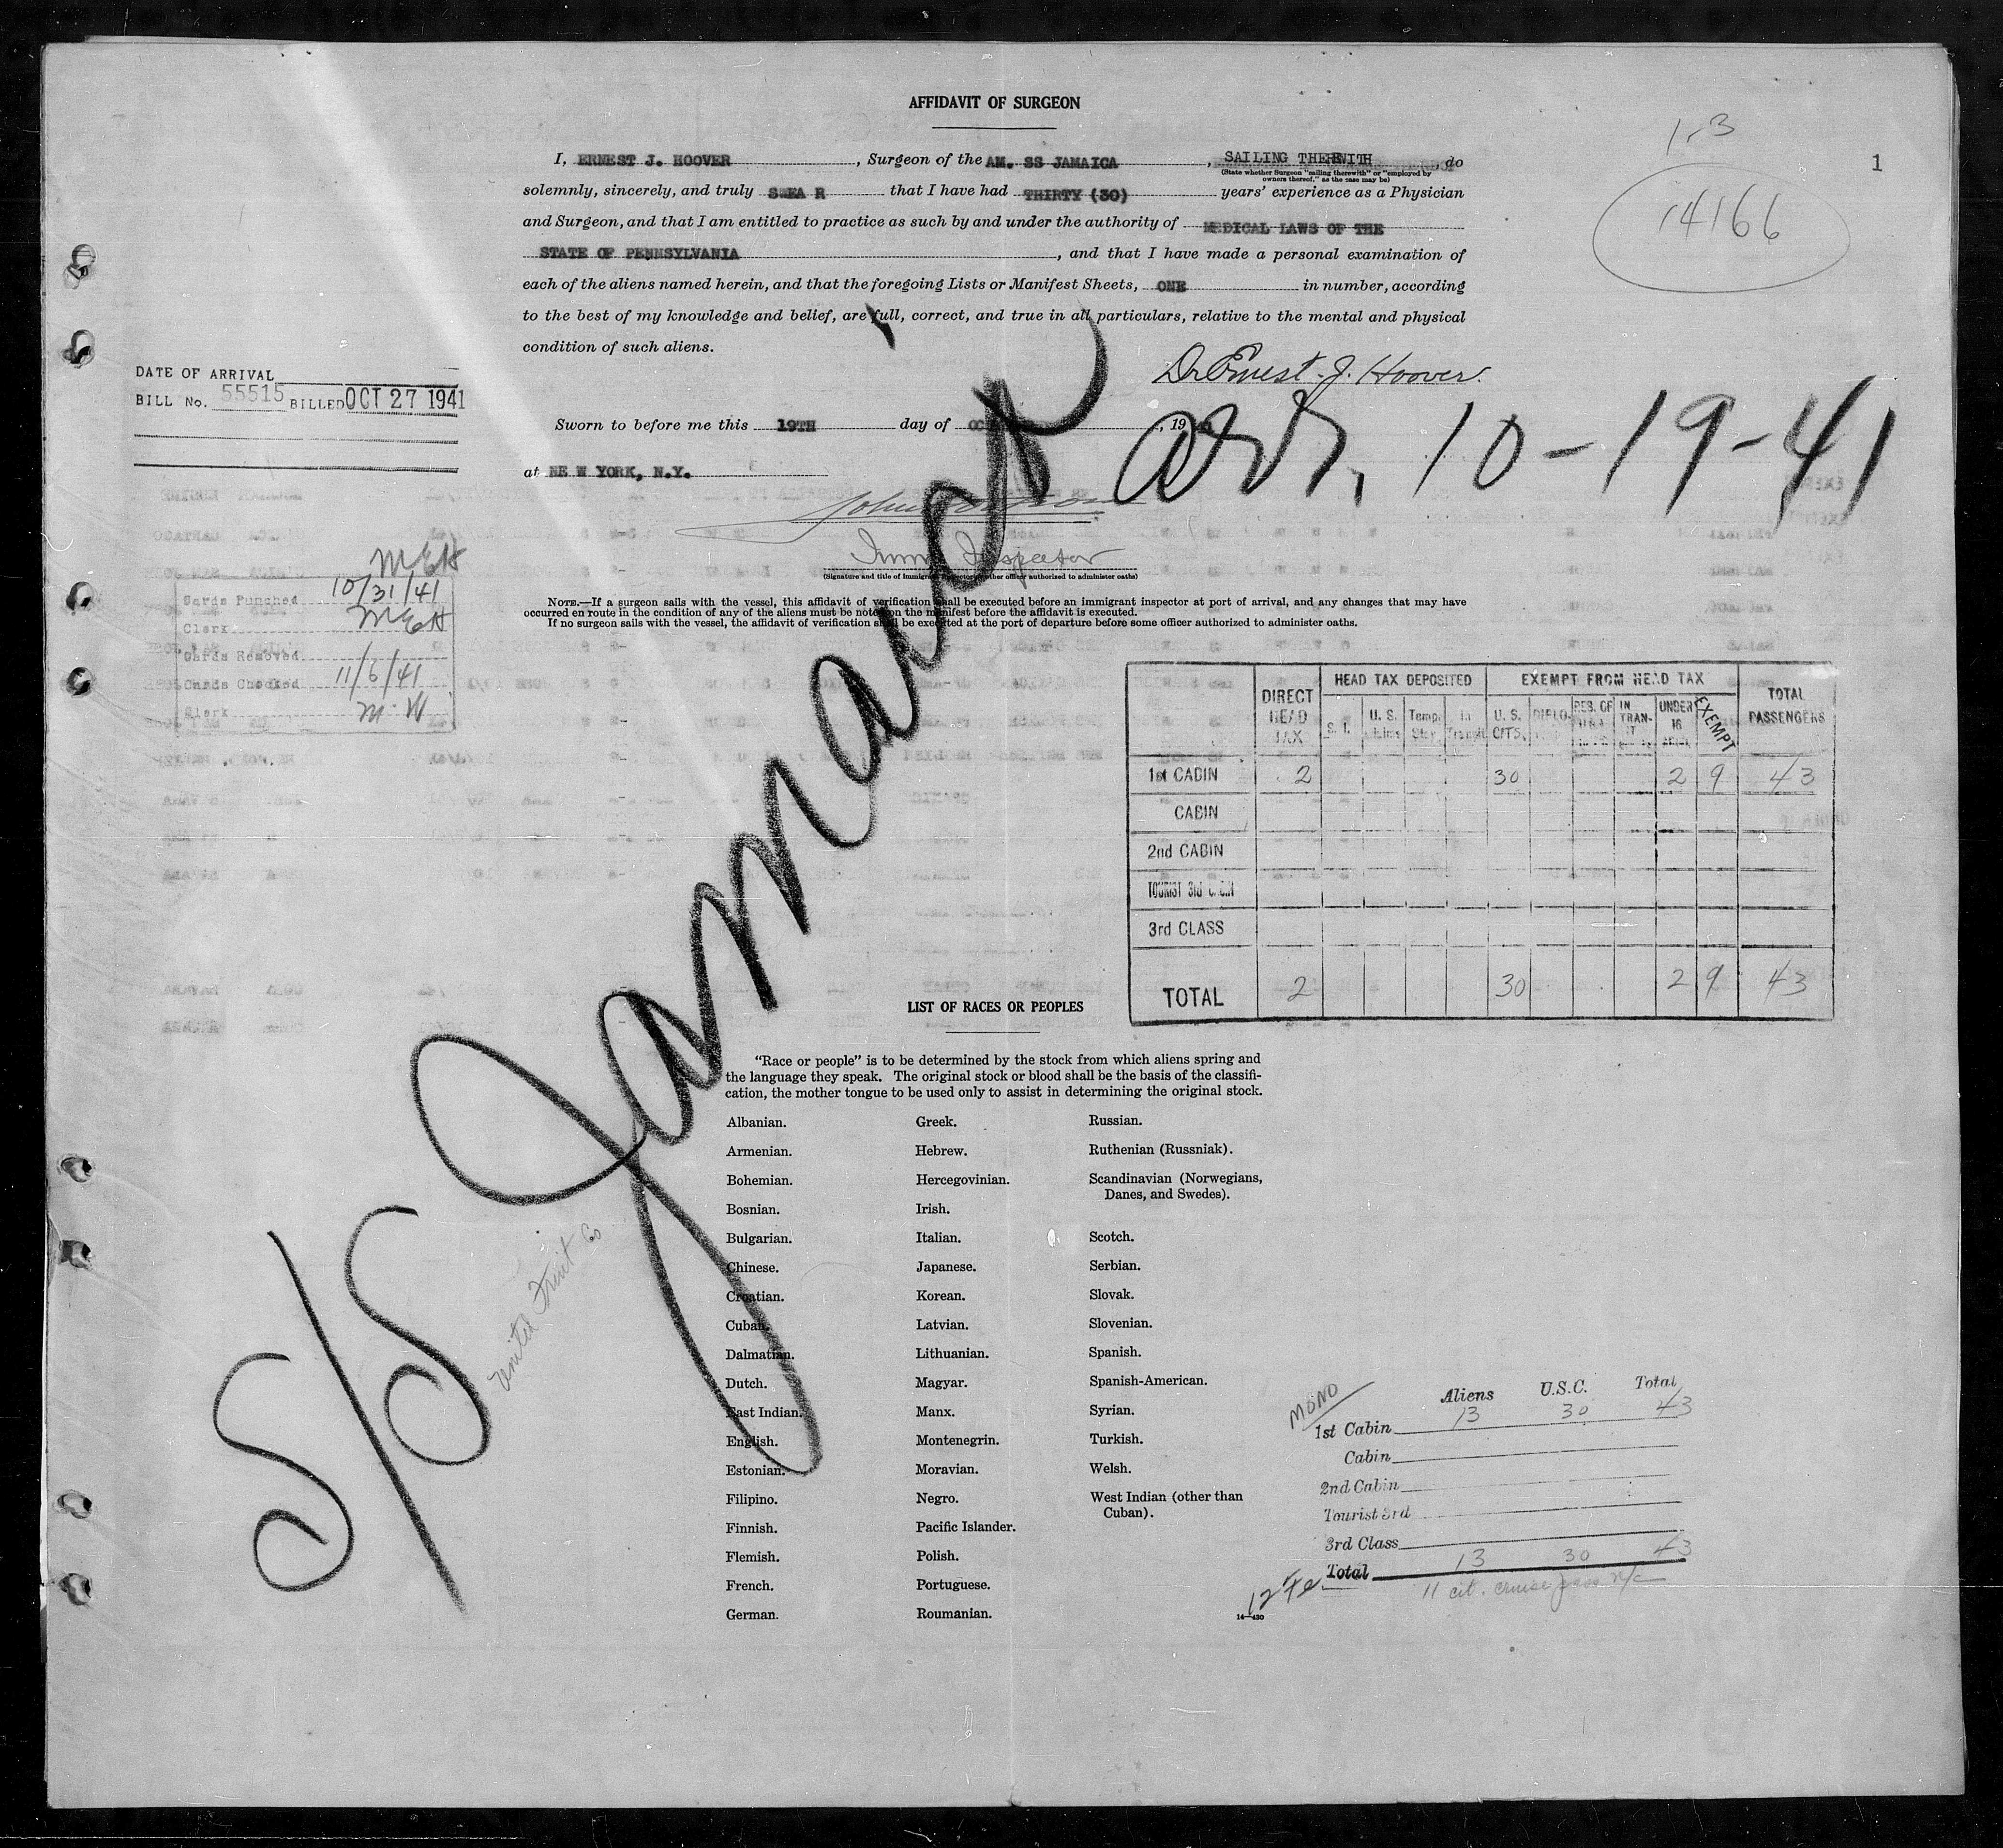 AFFIDAVIT OF SURGEON
1-3
1
14166
I, ERNEST J. HOOVER, Surgeon of the AM. SS JAMAICA, SAILING THEREWITH, do
(State whether Surgeon "sailing therewith" or "employed by
owners thereof," as the case may be)
solemnly, sincerely, and truly SWEAR that I have had THIRTY (30) years' experience as a Physician
and Surgeon, and that I am entitled to practice as such by and under the authority of MEDICAL LAWS OF THE
STATE OF PENNSYLVANIA, and that I have made a personal examination of
each of the aliens named herein, and that the foregoing Lists or Manifest Sheets, ONE in number, according
to the best of my knowledge and belief, are full, correct, and true in all particulars, relative to the mental and physical
condition of such aliens.
Dr Ernest. J. Hoover.
DATE OF ARRIVAL
BILL No. 55515 BILLED OCT 27 1941
Sworn to before me this 19TH day of OC , 19
arr. 10-19-41
at NEW YORK, N.Y.
John
Imm Inspector
(Signature and title of immigrant inspector or other officer authorized to administer oaths)
NOTE.—If a surgeon sails with the vessel, this affidavit of verification shall be executed before an immigrant inspector at port of arrival, and any changes that may have
occurred en route in the condition of any of the aliens must be noted on the manifest before the affidavit is executed.
If no surgeon sails with the vessel, the affidavit of verification shall be executed at the port of departure before some officer authorized to administer oaths.
MEH
Cards Punched 10/31/41
Clerk MEH
Cards Removed
Cards Checked 11/6/41
Clerk M. W
S/S Jamaica
United Fruit Co
DIRECT HEAD TAX
HEAD TAX DEPOSITED
EXEMPT FROM HEAD TAX
TOTAL PASSENGERS
S. I. U. S. Temp. Stay In Transit U. S. CITS. DIPLO- RES. OF IN TRAN- IT UNDER 16 EXEMPT
1st CABIN 2 30 2 9 43
CABIN
2nd CABIN
TOURIST 3rd CABIN
3rd CLASS
TOTAL 2 30 2 9 43
LIST OF RACES OR PEOPLES
"Race or people" is to be determined by the stock from which aliens spring and
the language they speak. The original stock or blood shall be the basis of the classifi-
cation, the mother tongue to be used only to assist in determining the original stock.
Albanian.
Armenian.
Bohemian.
Bosnian.
Bulgarian.
Chinese.
Croatian.
Cuban.
Dalmatian.
Dutch.
East Indian.
English.
Estonian.
Filipino.
Finnish.
Flemish.
French.
German.
Greek.
Hebrew.
Hercegovinian.
Irish.
Italian.
Japanese.
Korean.
Latvian.
Lithuanian.
Magyar.
Manx.
Montenegrin.
Moravian.
Negro.
Pacific Islander.
Polish.
Portuguese.
Roumanian.
Russian.
Ruthenian (Russniak).
Scandinavian (Norwegians,
Danes, and Swedes).
Scotch.
Serbian.
Slovak.
Slovenian.
Spanish.
Spanish-American.
Syrian.
Turkish.
Welsh.
West Indian (other than
Cuban).
14—430
MONO
Aliens U.S.C. Total
1st Cabin 13 30 43
Cabin
2nd Cabin
Tourist 3rd
3rd Class
Total 13 30 43
11 cit. cruise pass n/c